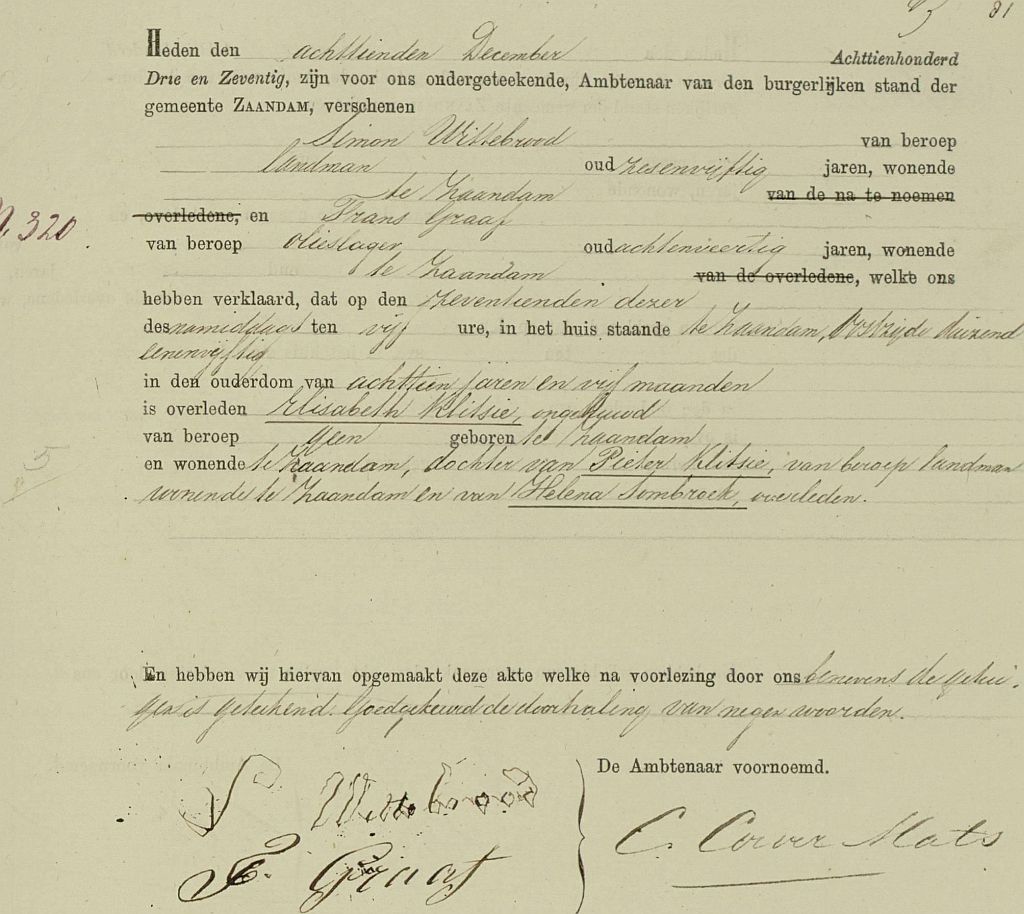 81
Heden den achttienden December Achttienhonderd
Drie en Zeventig, zijn voor ons ondergeteekende, Ambtenaar van den burgerlijken stand der
gemeente ZAANDAM, verschenen
Simon Wittebrood van beroep
landman oud zesenvijftig jaren, wonende
te Zaandam van de na te noemen
overledene, en Frans Graaf
No. 320.
van beroep olieslager oud achtenveertig jaren, wonende
te Zaandam van de overledene, welke ons
hebben verklaard, dat op den zeventienden dezer
des namiddags ten vijf ure, in het huis staande te Zaandam, Oostzijde duizend
eenenvijftig
in den ouderdom van achttien jaren en vijf maanden
is overleden Elisabeth Klitsie, ongehuwd
van beroep geen geboren te Zaandam
en wonende te Zaandam, dochter van Pieter Klitsie, van beroep landman
wonende te Zaandam en van Helena Sombroek, overleden.
5
En hebben wij hiervan opgemaakt deze akte welke na voorlezing door ons benevens de getui-
gen is geteekend. Goedgekeurd de doorhaling van negen woorden.
De Ambtenaar voornoemd.
S Wittebrood
C. Corver Mats
F. Graaf